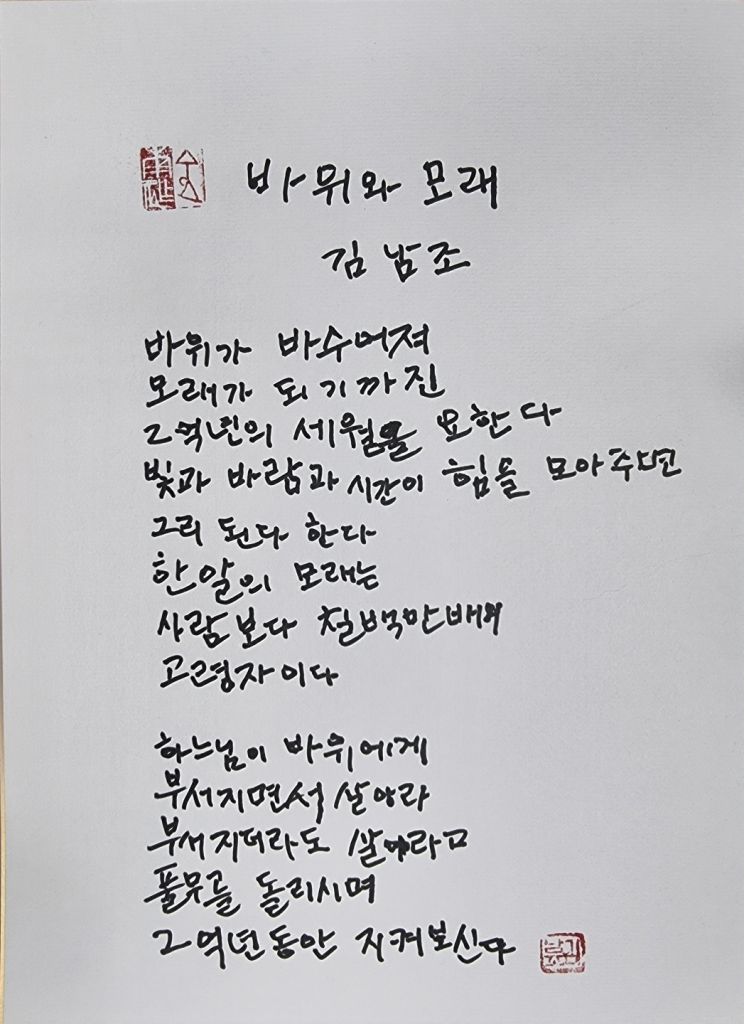 바위와 모래
김남조
바위가 바수어져
모래가 되기까진
그 억년의 세월을 요한다
빛과 바람과 시간이 힘을 모아주면
그리 된다 한다
한 알의 모래는
사람보다 천백만배의
고령자이다
하느님이 바위에게
부서지면서 살아라
부서지더라도 살아라고
풀무를 돌리시며
그 억년동안 지켜보신다